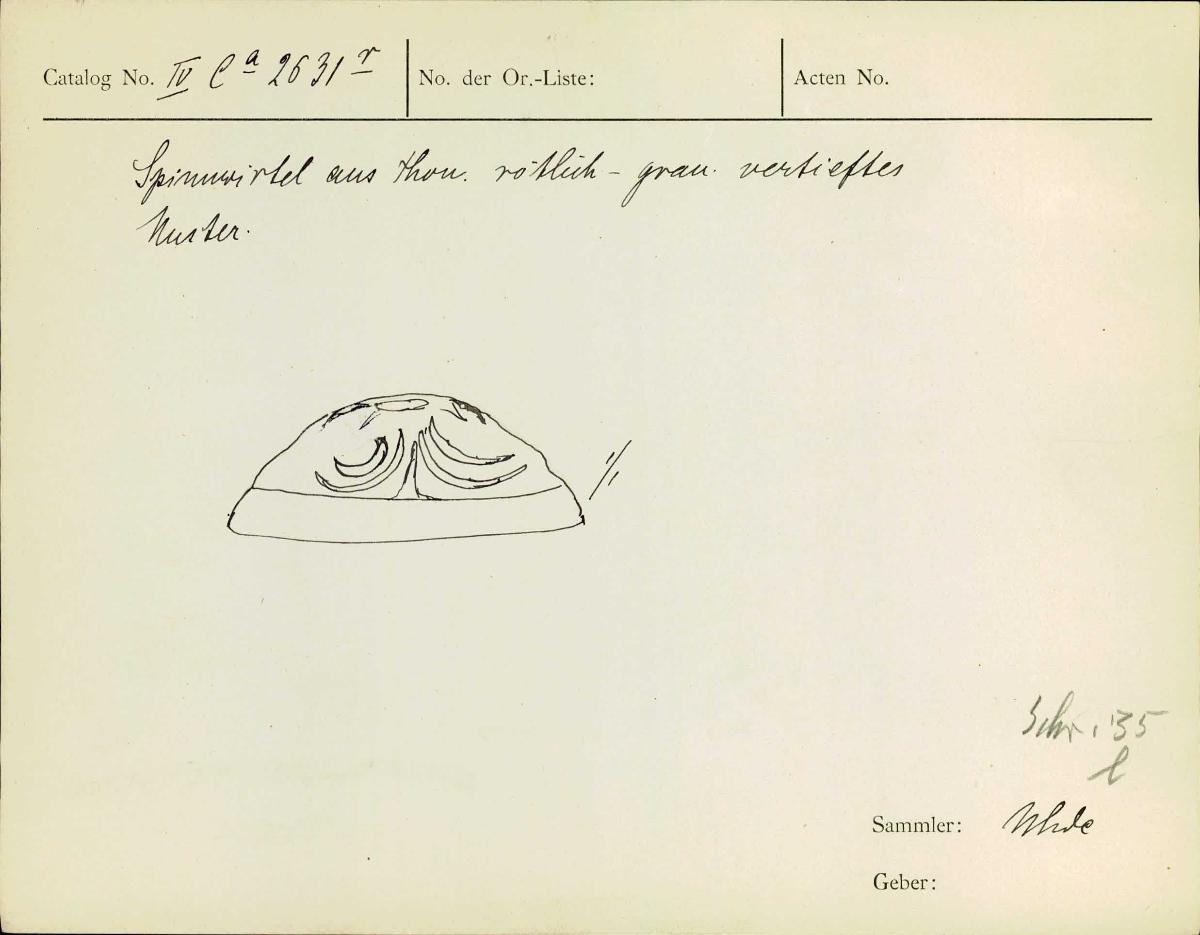 Catalog No. IV Ca 2631 r
No. der Or.-Liste:
Acten No.
Spinnwirtel aus Thon. rötlich - grau. vertieftes
Muster.
1/1
Schr. 35
l
Sammler: Uhde
Geber: